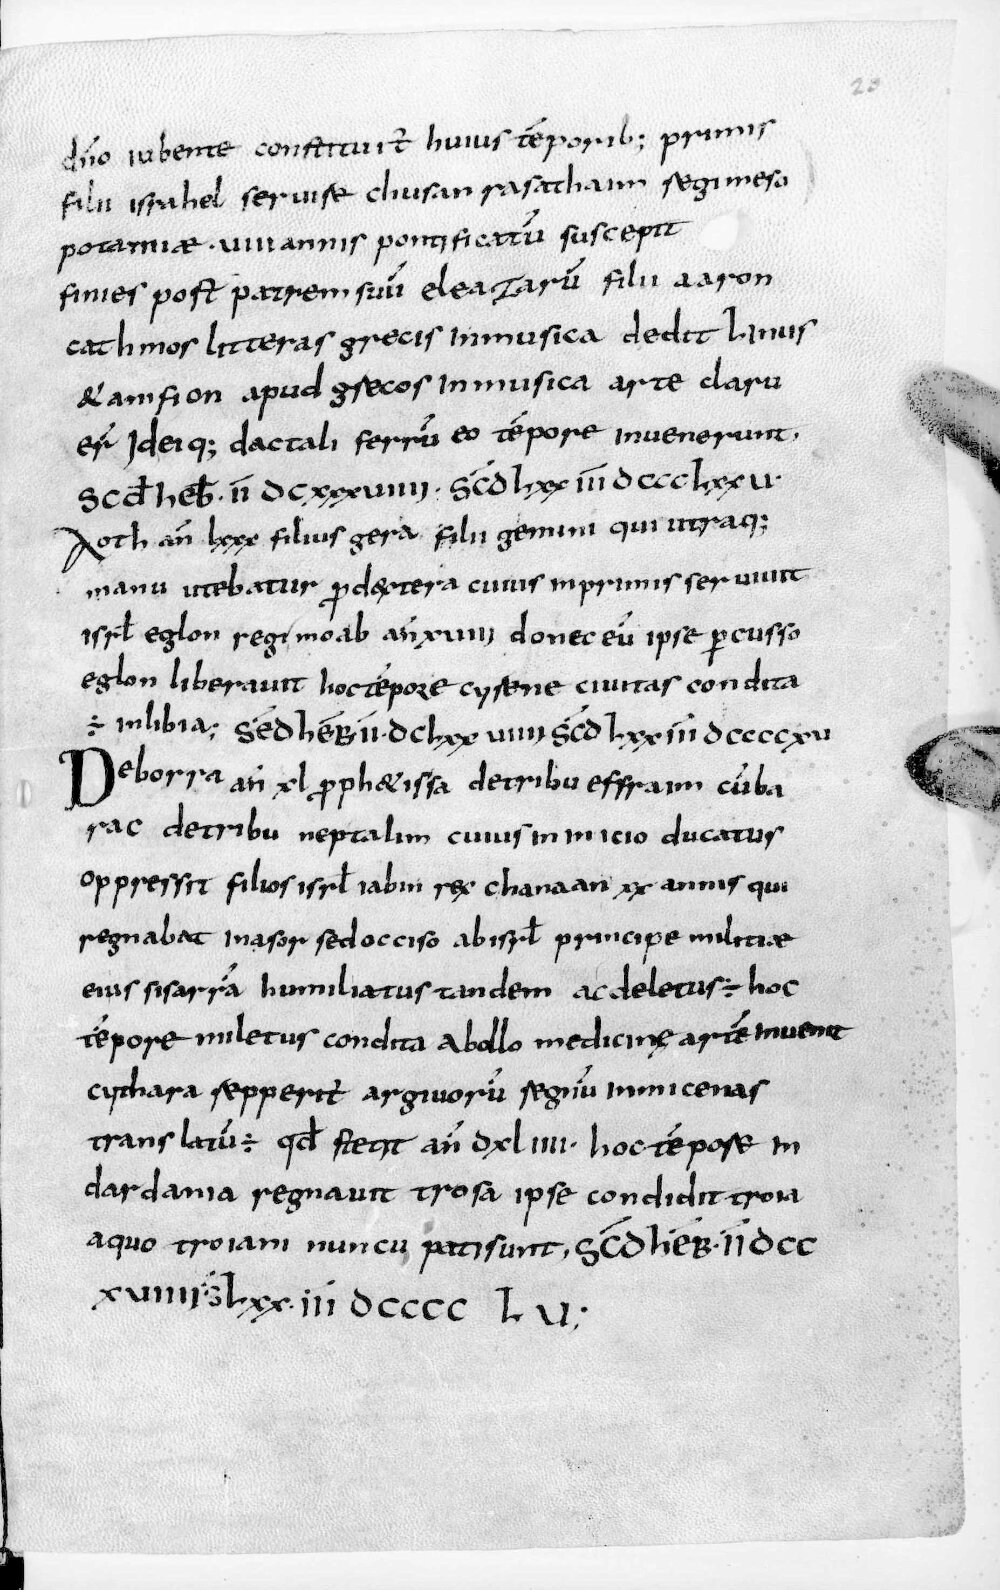 20
dn̄o iubente constituit huius tēporib; primis
filii israhel seruise chusan rasathaim regimeso
potamiæ · uiii annis pontificatū suscepit
finies post patrem suū eleazarū filii aaron
cathmos litteras grecis inmusica dedit Linus
& amfion apud grecos inmusica arte claru
er̄ Ideiq; dactali ferrū eo tēpore inuenerunt,
Scd̄ heb̄ · īī dcxxxuiiii · Sc̄d lxx īīī dccclxxu ·
Aoth an̄ lxxx filius gera filii gemini qui utraq;
manu utebatur p̄dextera cuius inprimis seruiuit
isrł eglon regi moab an̄ xuiii donec eū ipse ꝑcusso
eglon liberauit hoc tēpore cyrene ciuitas condita
÷ inlibia; Sēd hēB īī · dclxxuiiii Sc̄d lxx īīī dccccxu
Deborra an̄ xl ꝓph&issa detribu effraim cūba
rac detribu neptalim cuius in inicio ducatus
oppressit filios isrł iabin rex chanaan xx annis qui
regnabat inasor sedocciso abisrł principe militiæ
eius sisarrā humiliatus tandem ac deletus ÷ hoc
tēpore miletus condita Abollo medicinę artē inuenit
cythara repperit argiuorū regnū inmicenas
translatū ÷ qd̄ stetit an̄ dxliiii · hoc tēpore in
dardania regnauit trosa ipse condidit troia
aquo troiani nuncu patisunt, Sc̄d hēB · īī dcc
xuiiii s̄ lxx · īīī dcccc Lu;